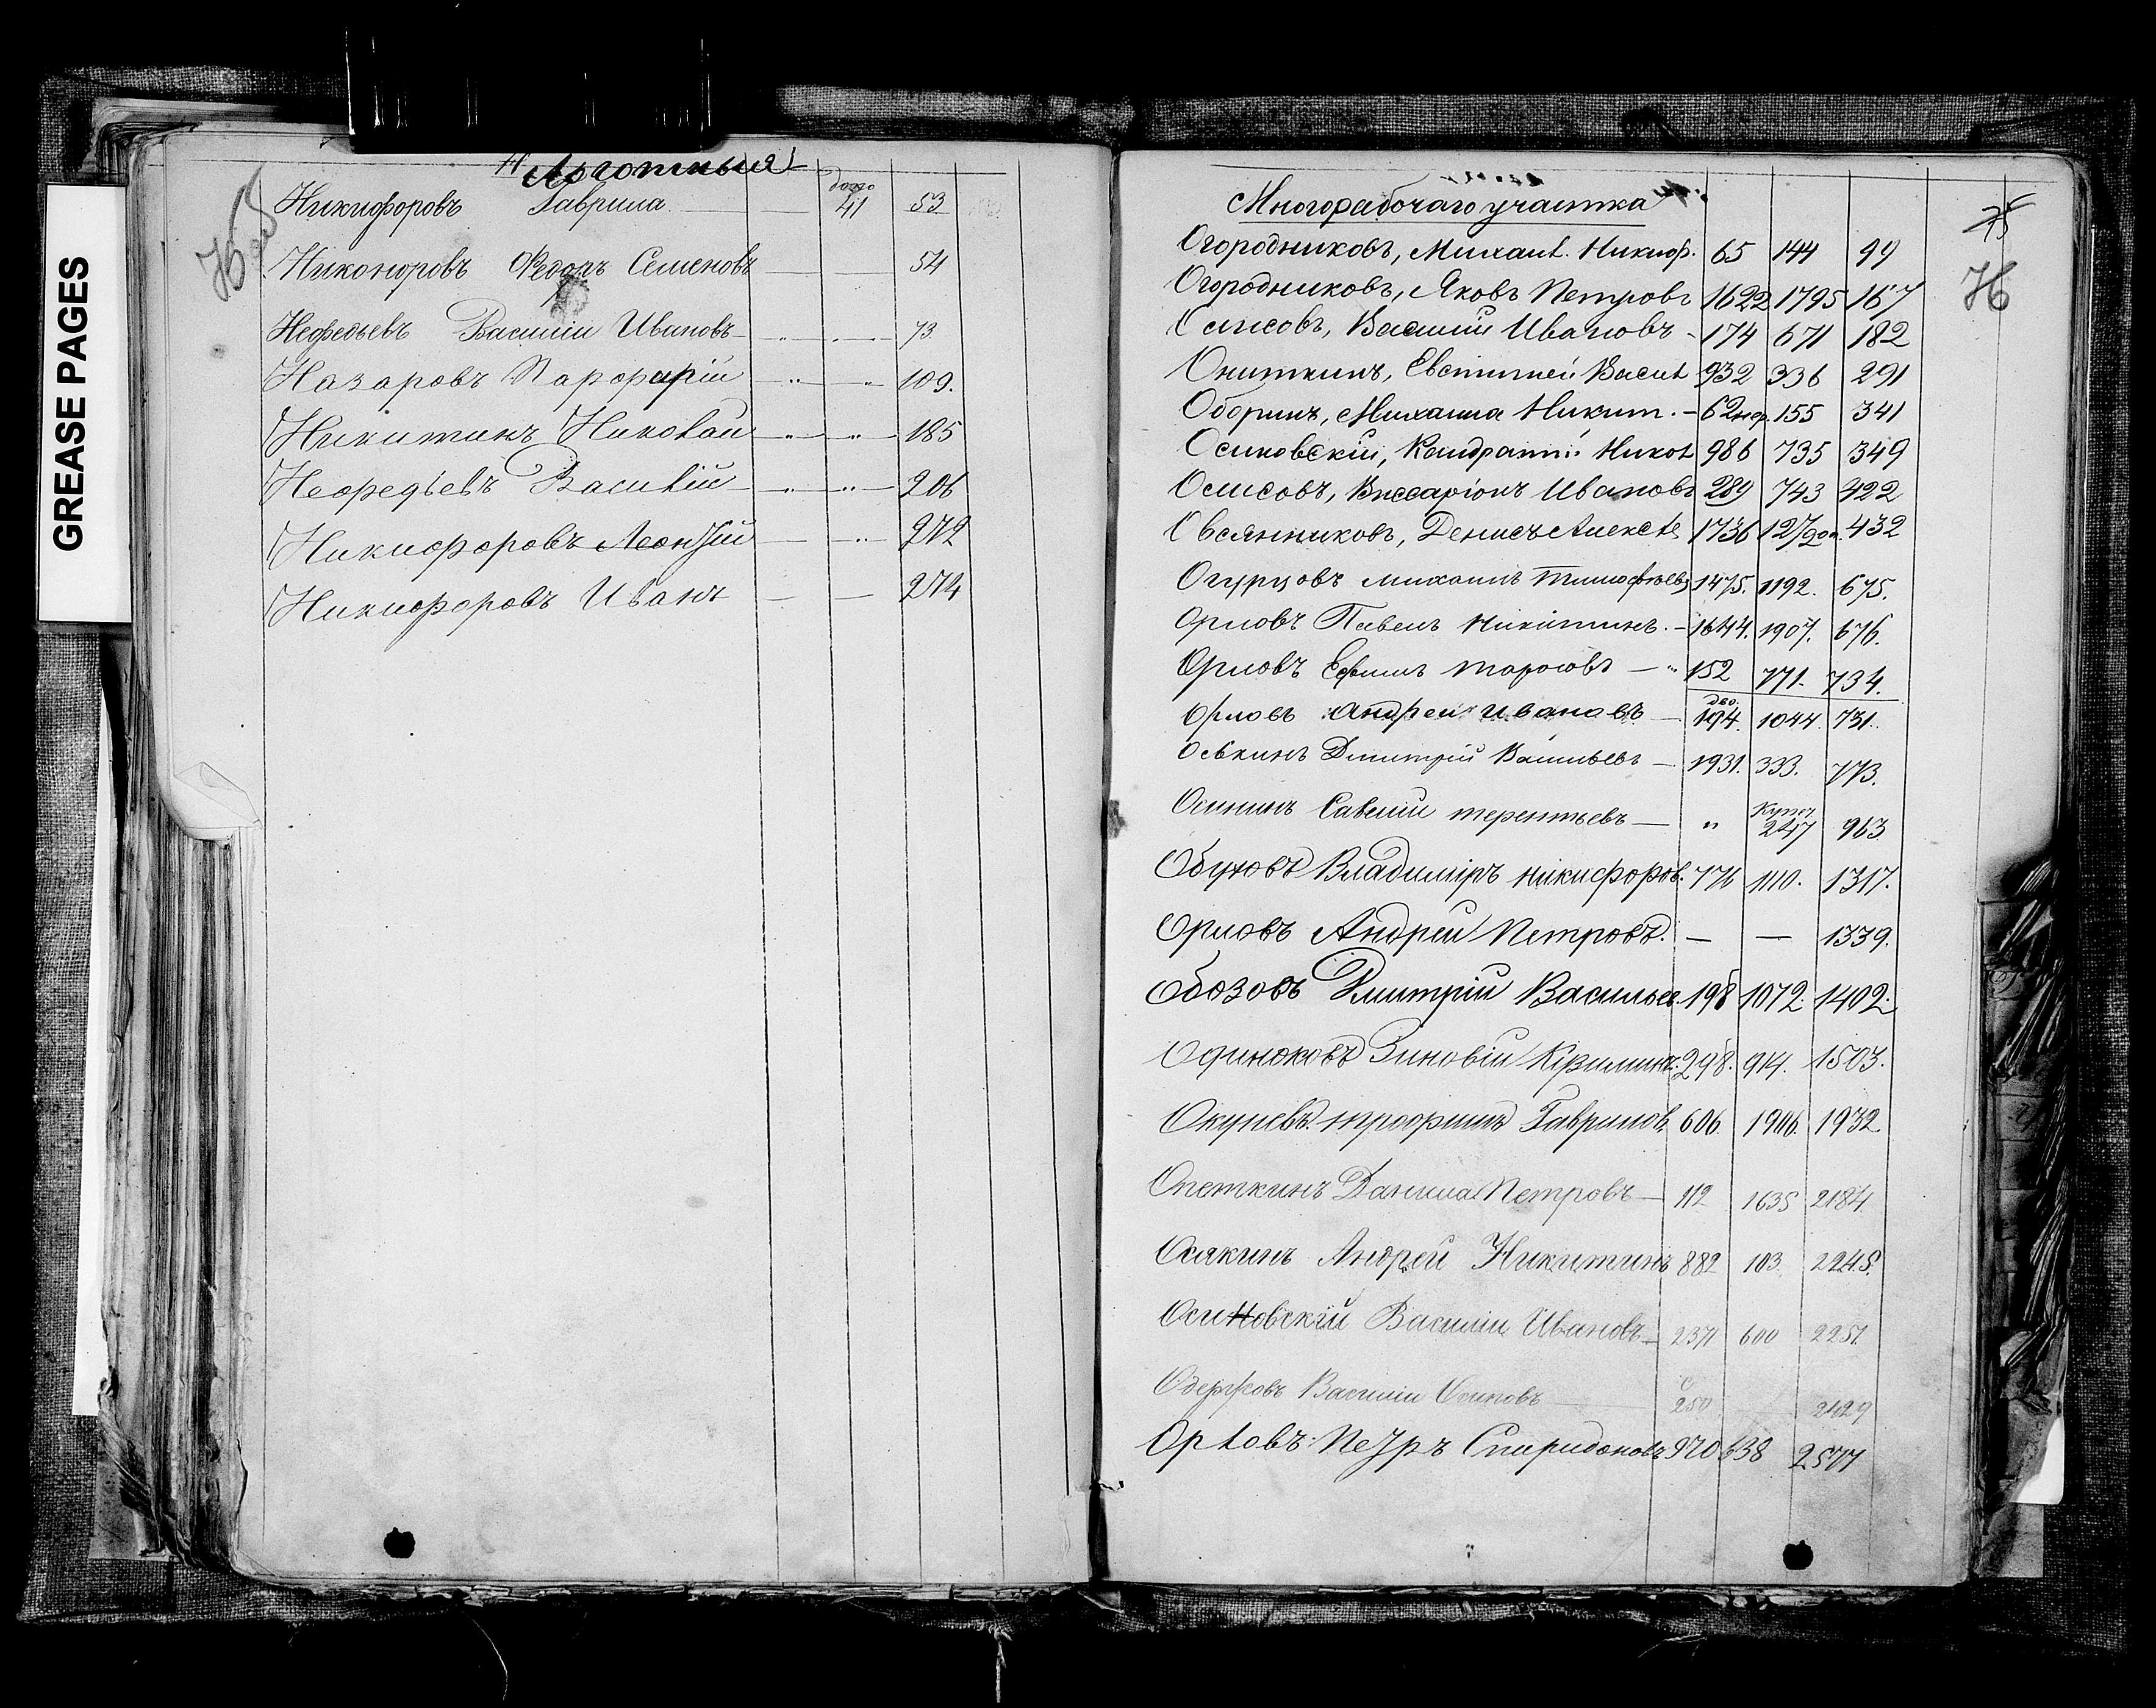 GREASE PAGES
Льготныя
Никифоровъ Гаврила — — 41 53
Никоноровъ Федоръ Семеновъ — — 54
Нефедьевъ Василiи Ивановъ — „ — „ — 73.
Назаровъ Парфирiй — „ — „ 109.
Никитинъ Николай — „ — „ — 185
Нефедьевъ Василiй — „ — „ — 206
Никифоровъ Леонтiй — „ — 272
Никифоровъ Иванъ — — 274
Многорабочаго участка
Огородниковъ, Михаил. Никиф. 65 144 99
Огородниковъ, Яковъ Петровъ 1622 1795 167
Осиповъ, Василiй Ивановъ - 174 671 182
Ониткинъ, Евстигней Васил 932 336 291
Оборинъ, Михаила Никит. - 62 155 341
Осиповскiй, Кондратiй Никол 986 735 349
Осиповъ, Виссарiонъ Ивановъ 289 743 422
Овсянниковъ, Денисъ Алексѣ 1736 432
Огурцовъ Михаилъ Тимофѣевъ 1475. 1192. 675.
Орловъ Павелъ Никитинъ. - 1644. 1907. 676.
Орловъ Ефимъ Тарасовъ — 152 771. 734.
Орловъ Андрей Ивановъ — 194. 1044. 731.
Оськинъ Дмитрiй Васильевъ — 1931. 333. 773.
Осининъ Савелiй Терентьевъ — „ Купеч 247 963
Обуховъ Владимiръ Никифоров. 774 1110. 1317.
Орловъ Андреи Петровъ. — — 1339.
Обозовъ Дмитрiй Васильев. 198 1072. 1402.
Одиноковъ Зиновiй Кирилинъ. 298. 914. 1503.
Окуневъ Трофимъ Гаврилов. 606. 1906. 1932
Опеткинъ Данила Петровъ — 112 1635 2184.
Осякинъ Андрей Никитинъ 882 103. 2248.
Осиновскiй Василiи Ивановъ — 2371 600 2251.
Василiи Осиповъ — 250 2429
Орловъ Петръ Спиридоновъ 970 638 2577
75
76